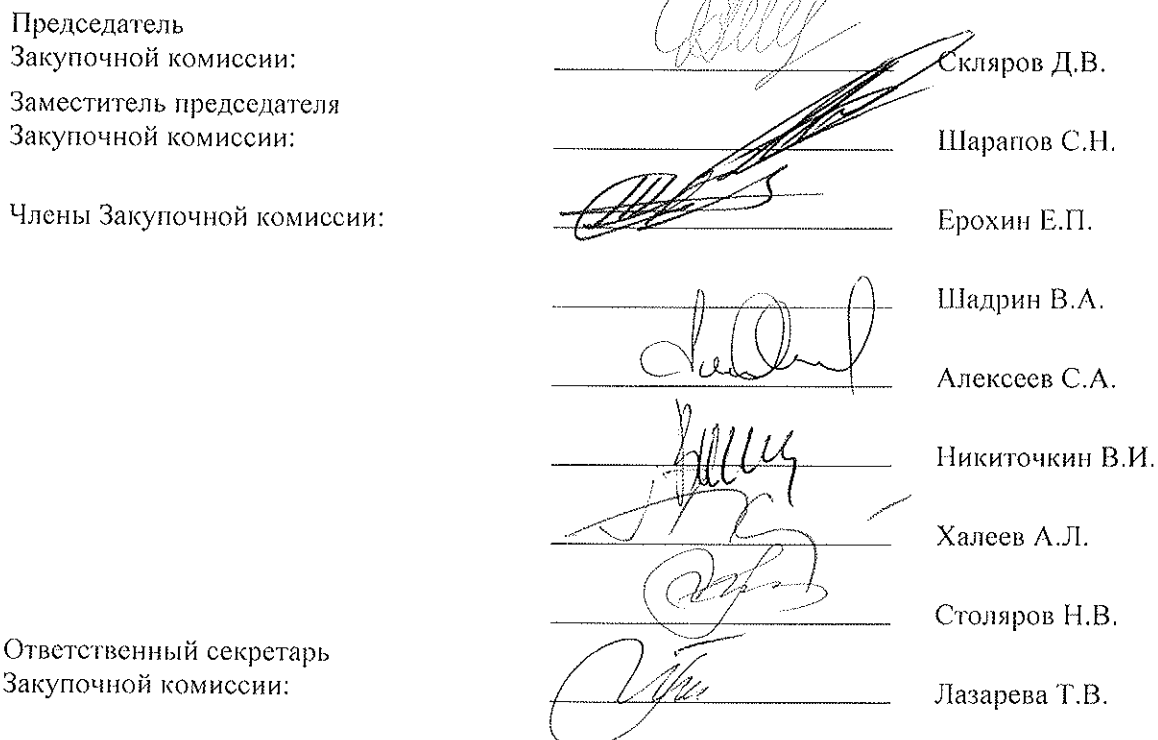 Председатель
Закупочной комиссии: Скляров Д.В.
Заместитель председателя
Закупочной комиссии: Шарапов С.Н.
Члены Закупочной комиссии: Ерохин Е.П.
Шадрин В.А.
Алексеев С.А.
Никиточкин В.И.
Халеев А.Л.
Столяров Н.В.
Ответственный секретарь
Закупочной комиссии: Лазарева Т.В.